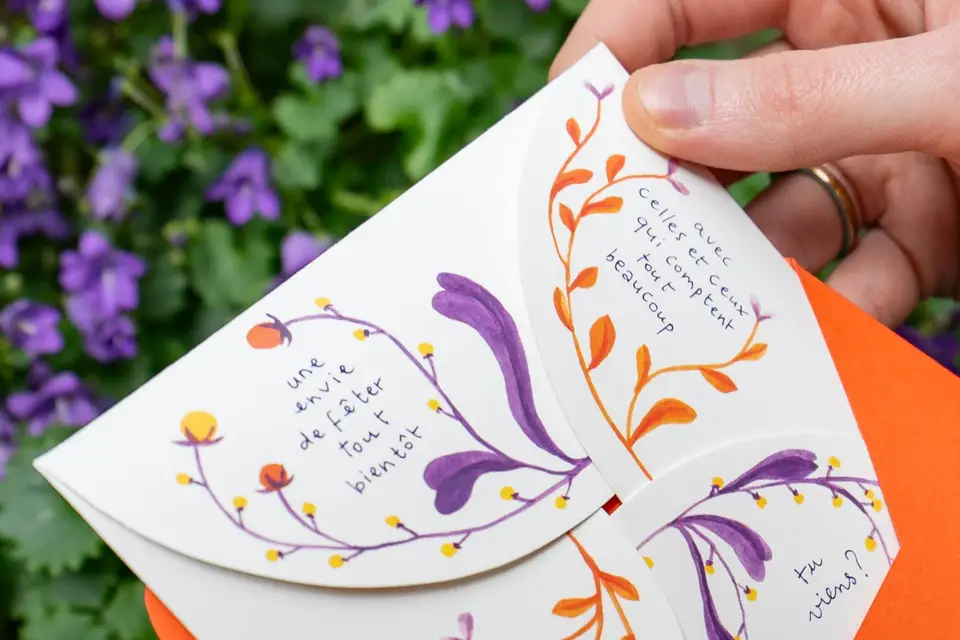 une
envie
de fêter
tout
bientôt
avec
celles et ceux
qui comptent
tout
beaucoup
tu
viens?